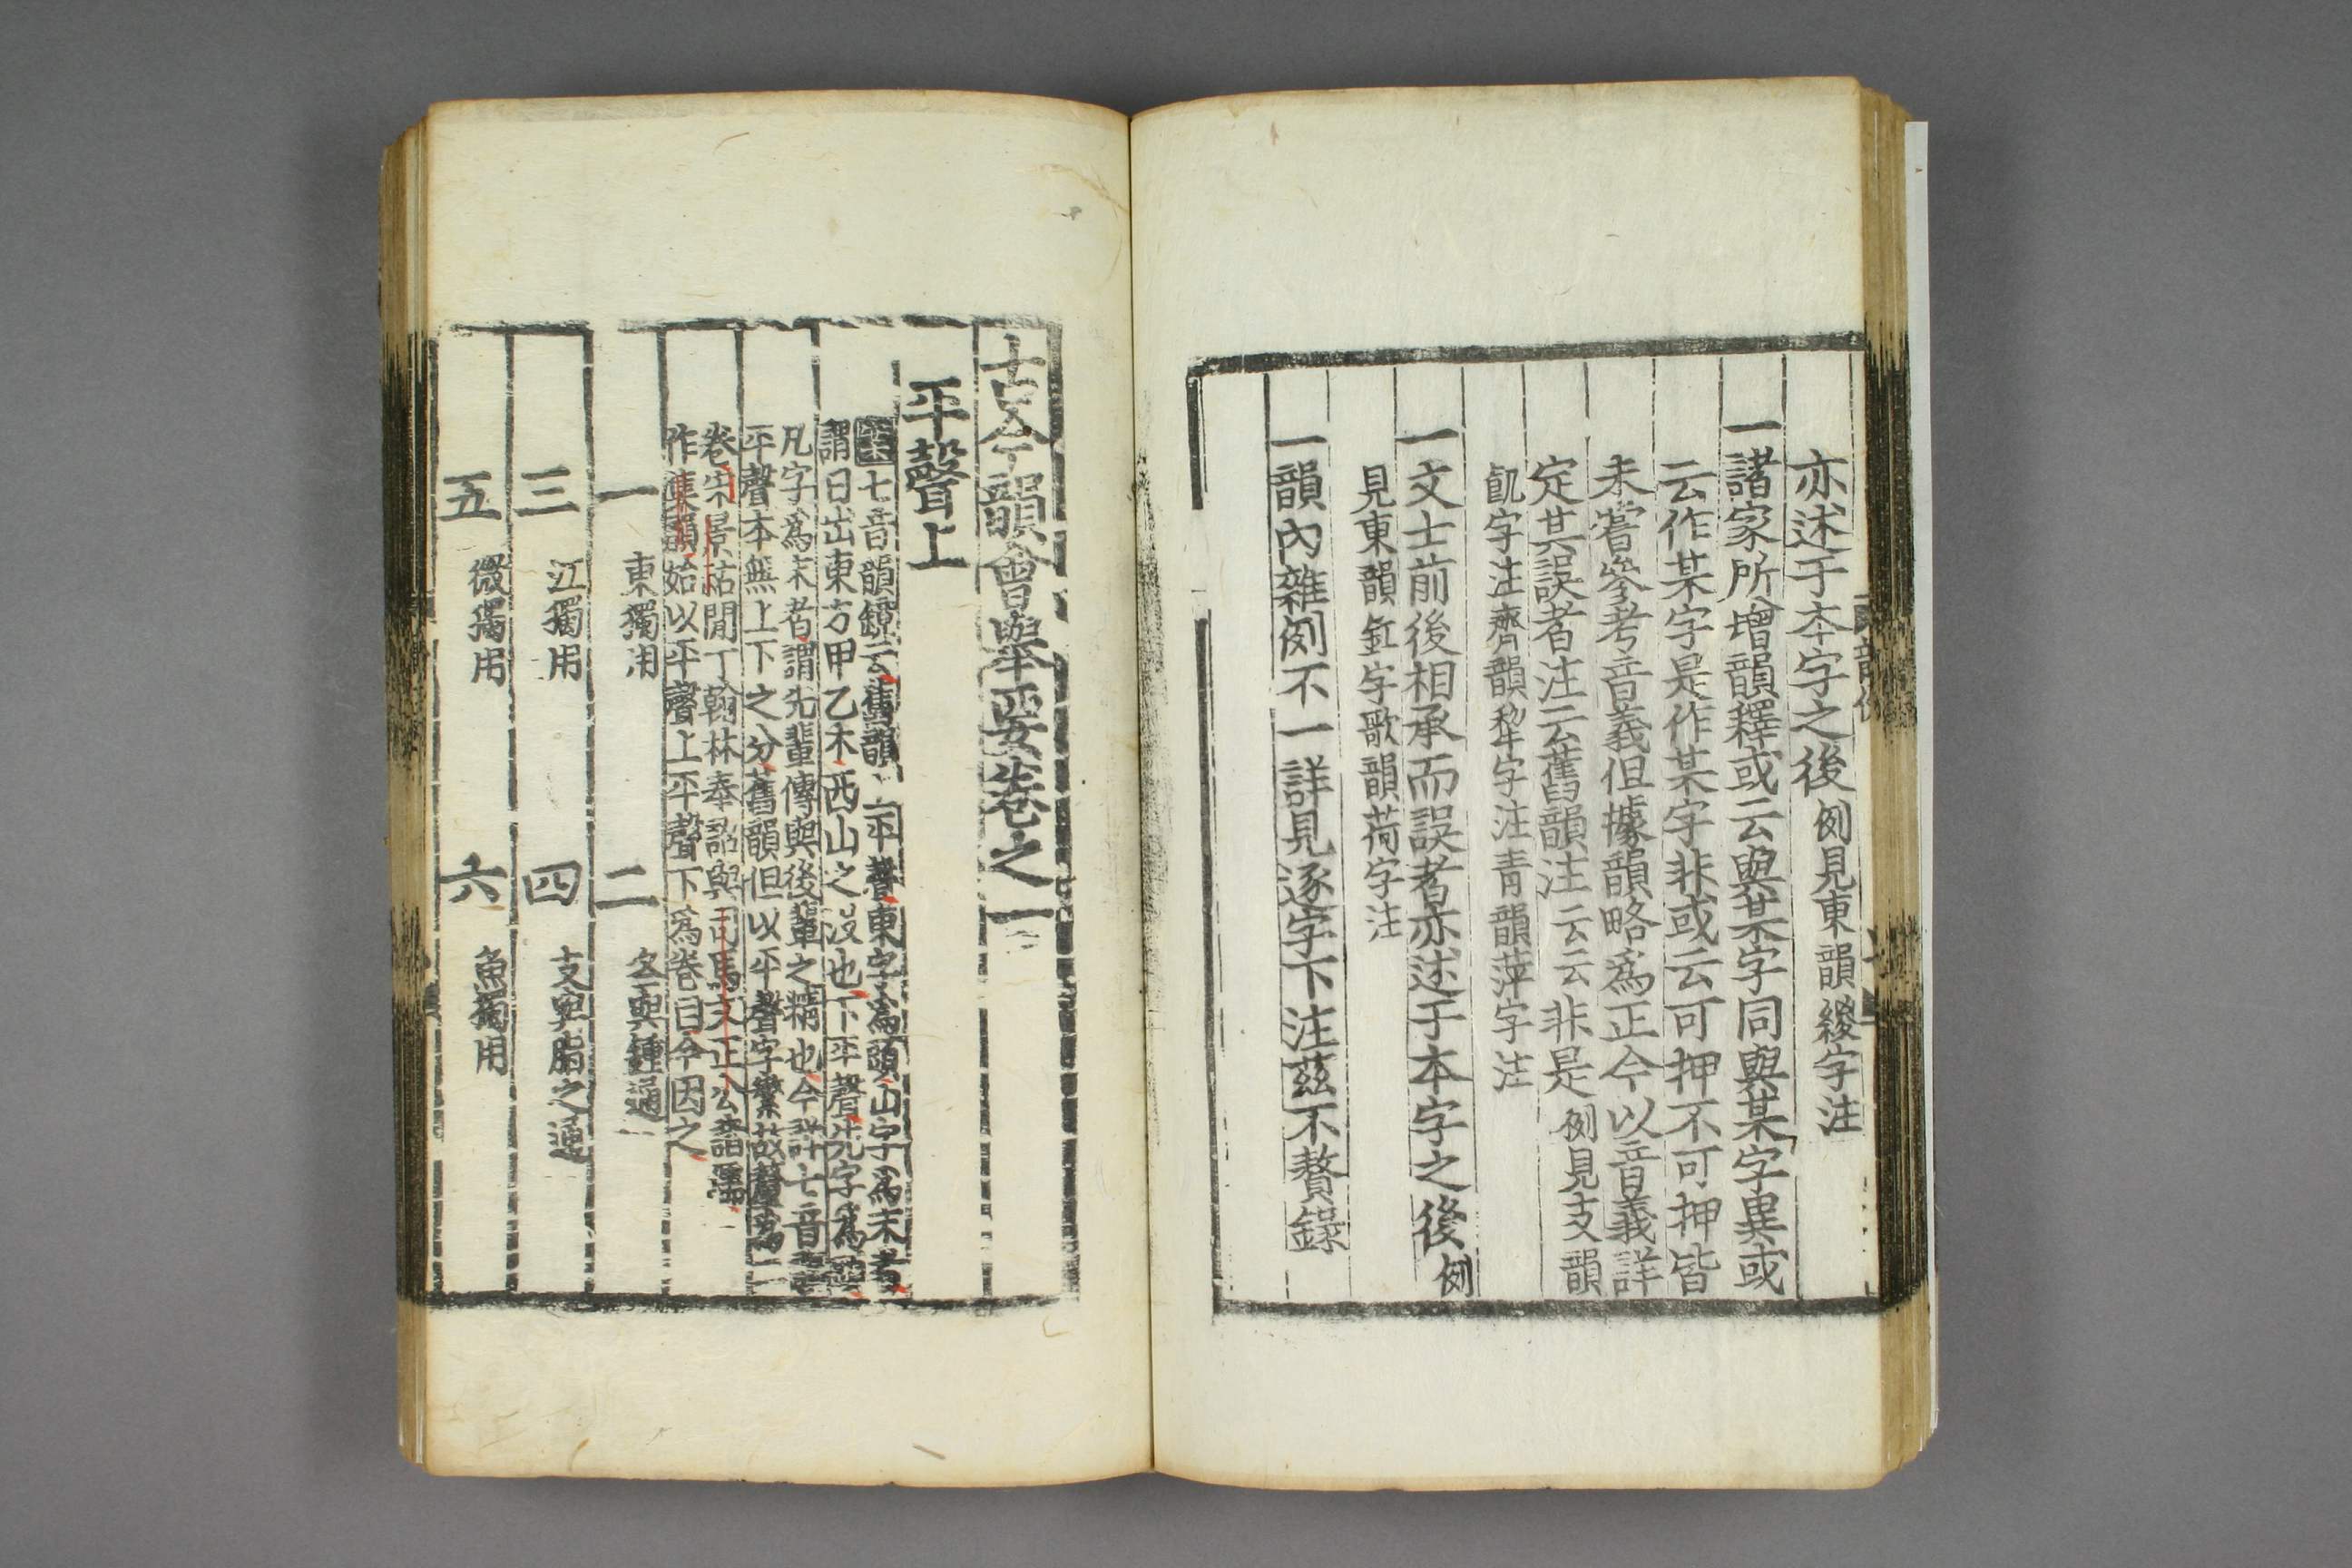 亦述于本字之後例見東韻緵字注
一諸家所增韻釋或云與某字同與某字異或
云作某字是作某字非或云可押不可押皆
未嘗參考音義但據韻略爲正今以音義詳
定其誤者注云舊韻注云云非是例見支韻
㕡字注齊韻犂字注靑韻萍字注
一文士前後相承而誤者亦述于本字之後例
見東韻釭字歌韻荷字注
一韻內雜例不一詳見逐字下注茲不贅錄
古今韻會舉要卷之一
平聲上
七音韻鏡云舊韻上平聲東字爲頭山字爲末者
謂日出東方甲乙木西山之沒也下平聲先字爲頭
凡字爲末者謂先輩傳與後輩之精也今詳七音
平聲本無上下之分舊韻但以平聲字繁故釐爲二
卷宋景祐閒丁翰林奉詔與司馬文正公諸儒
作集韻始以平聲上平聲下爲卷目今因之
一 東獨用 二 冬與鍾通
三 江獨用 四 支與脂之通
五 微獨用 六 魚獨用